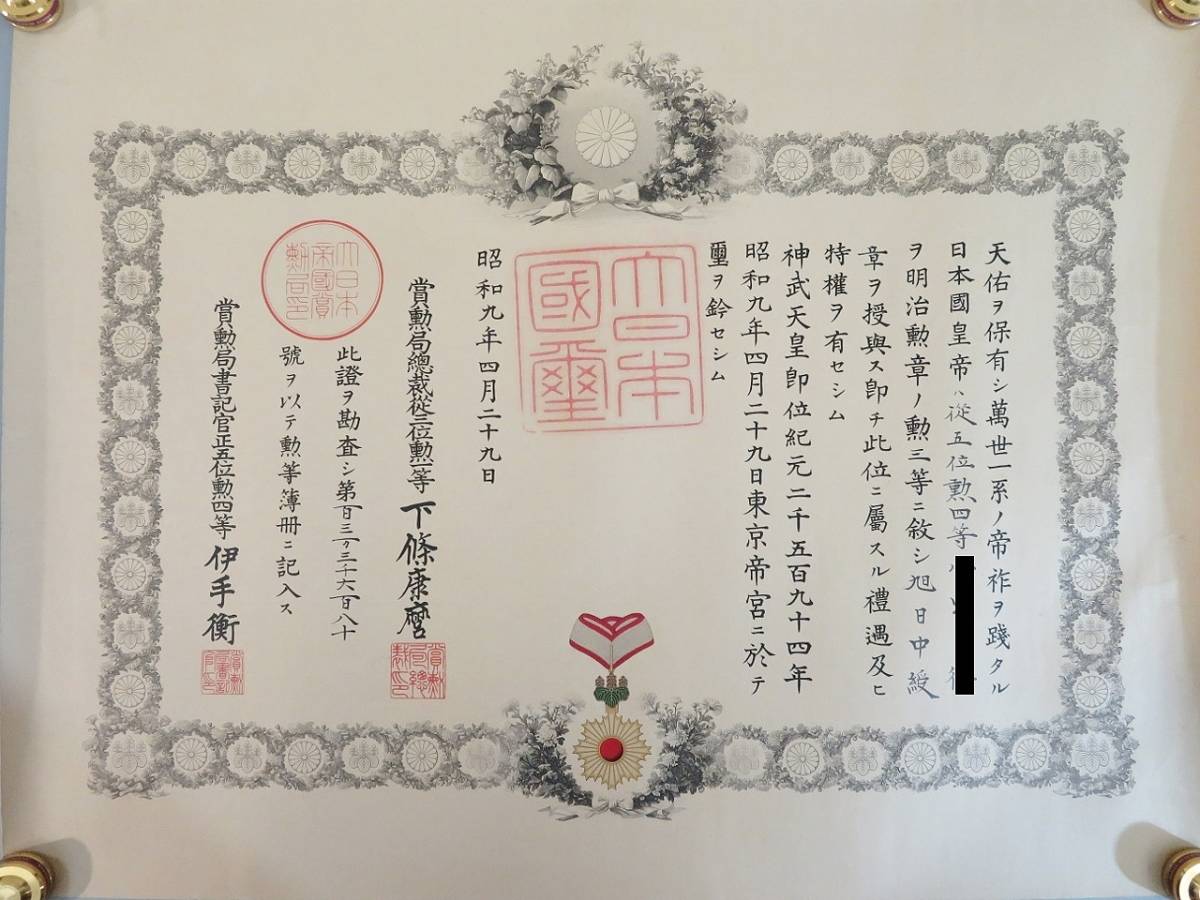 天佑ヲ保有シ萬世一系ノ帝祚ヲ踐タル
日本國皇帝ハ從五位勲四等
ヲ明治勲章ノ勲三等ニ敘シ旭日中綬
章ヲ授與ス卽チ此位ニ屬スル禮遇及ヒ
特權ヲ有セシム
神武天皇卽位紀元二千五百九十四年
昭和九年四月二十九日東京帝宮ニ於テ
璽ヲ鈐セシム
大日本
國璽
昭和九年四月二十九日
賞勲局總裁從三位勲一等 下條康麿
賞勲
局總
裁印
大日本
帝國賞
勲局印
此證ヲ勘査シ第百三万三千六百八十
號ヲ以テ勲等簿册ニ記入ス
賞勲局書記官正五位勲四等 伊手衡
賞勲
局書記
官印